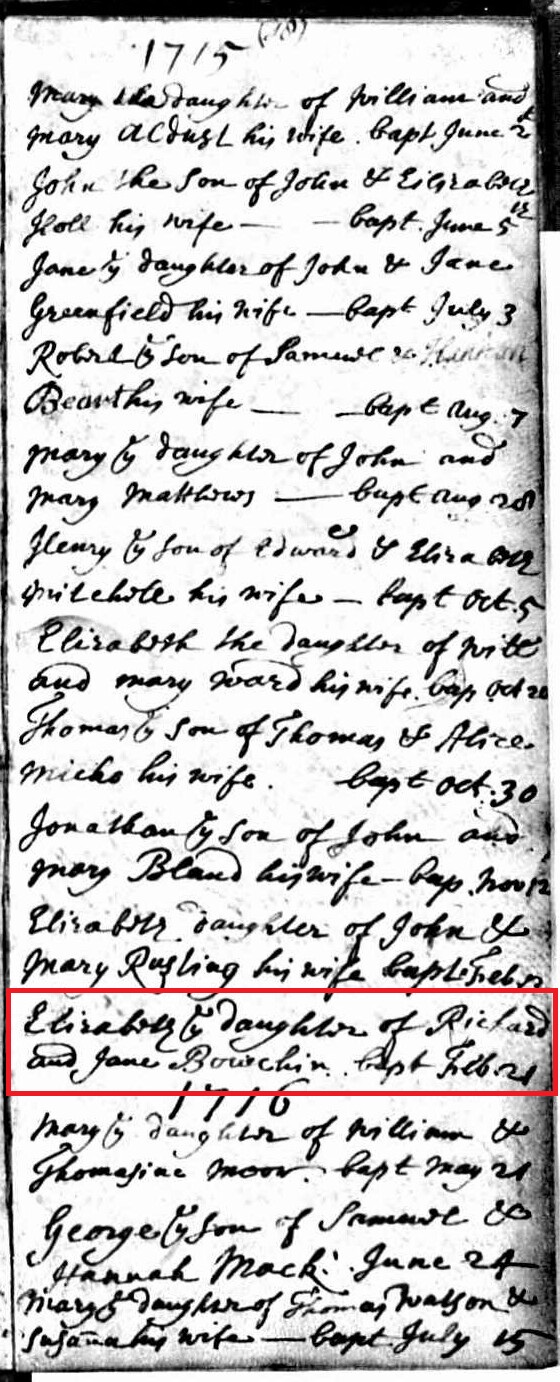 1715
Mary the daughter of William and
Mary Aldust his wife. bapt June 2
John the Son of John & Elizabeth
Holl his wife — — bapt. June 5th
Jane ỹ daughter of John & Jane
Greenfield his wife — bapt July 3
Robert ỹ Son of Samuel & Hannah
Beart his wife — — bapt Aug. 7
Mary ỹ daughter of John and
Mary Matthews — bapt Aug 28
Henry ỹ Son of Edward & Elizabeth
Mitchele his wife — bapt Oct. 5
Elizabeth the daughter of Will
and Mary Ward his wife. bap Oct 20
Thomas ỹ Son of Thomas & Alice
Micho his wife. bapt Oct. 30
Jonathan ỹ Son of John and
Mary Bland his wife — bap. Nov 12
Elizabeth daughter of John &
Mary Rusling his wife bapt. Feb.
Elizabeth ỹ daughter of Richard
and Jane Bowchin. bapt Feb. 21
1716
Mary ỹ daughter of William &
Thomasine Moor. bapt May 21
George ỹ Son of Samuel &
Hannah Mack. June 24
Mary ỹ daughter of Thomas Watson &
Susanna his wife — bapt July 15